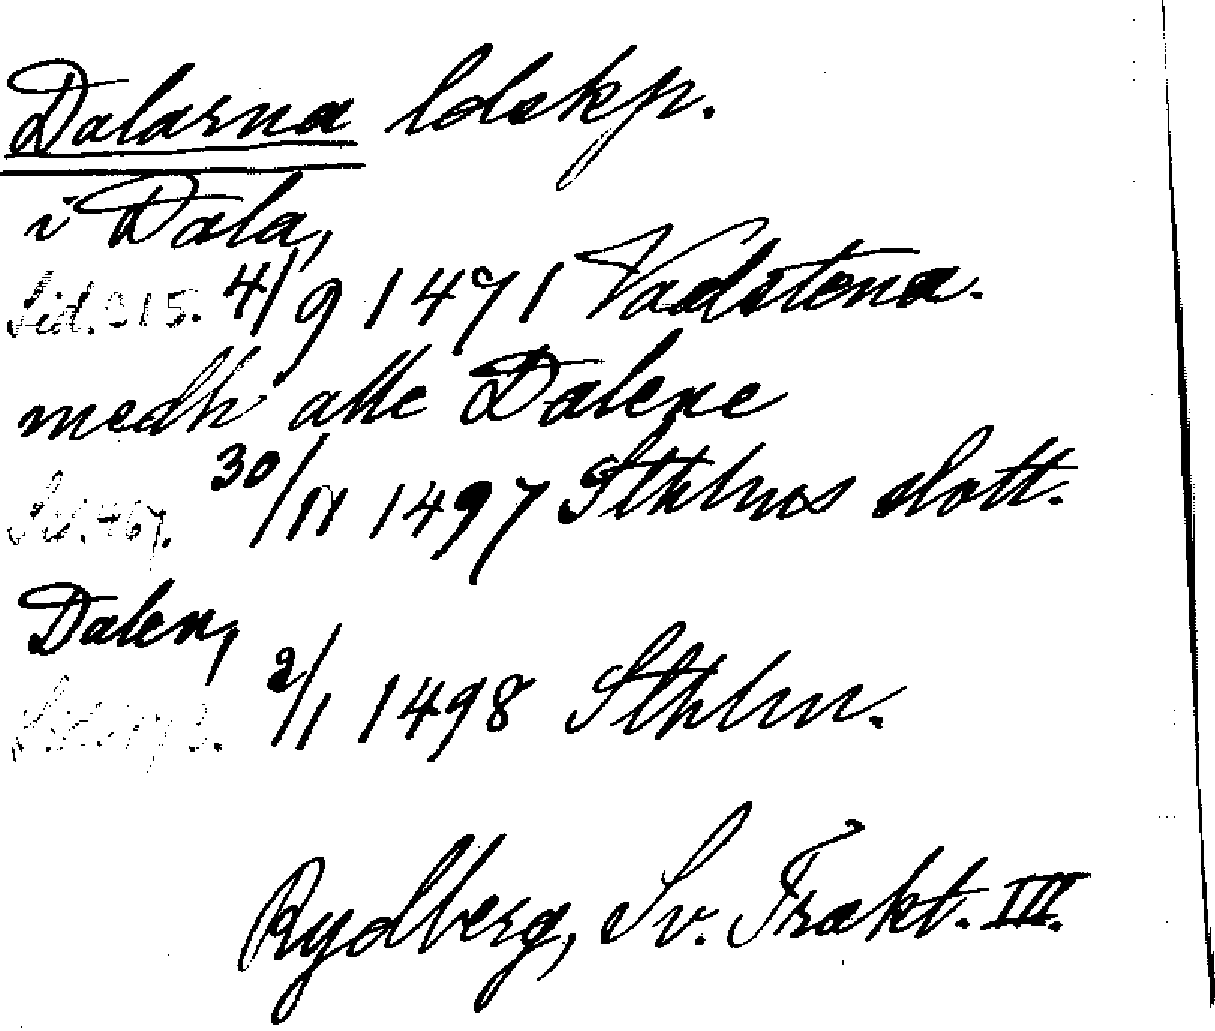 Dalarna ldskp.
i Dala,
Sid. 315. 4/9 1471 Vadstena.
medh alle Dalene
Sid. 467. 30/11 1497 Sthlms slott.
Dalen,
2/1 1498 Sthlm.
Rydberg, Sv. Trakt. III.